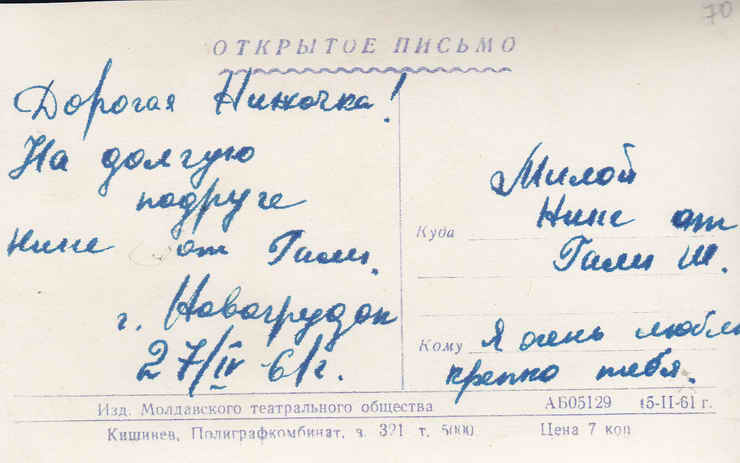 70
ОТКРЫТОЕ ПИСЬМО
Дорогая Ниночка!
На долгую
подруге
Нине от Гали.
г. Новогрудок
27/IV 61 г.
Милой
Куда Нине от
Гали Ш.
Кому Я очень люблю
крепко тебя.
Изд. Молдавского театрального общества АБ05129 15-II-61 г.
Кишинев, Полиграфкомбинат, з. 321 т. 5000. Цена 7 коп